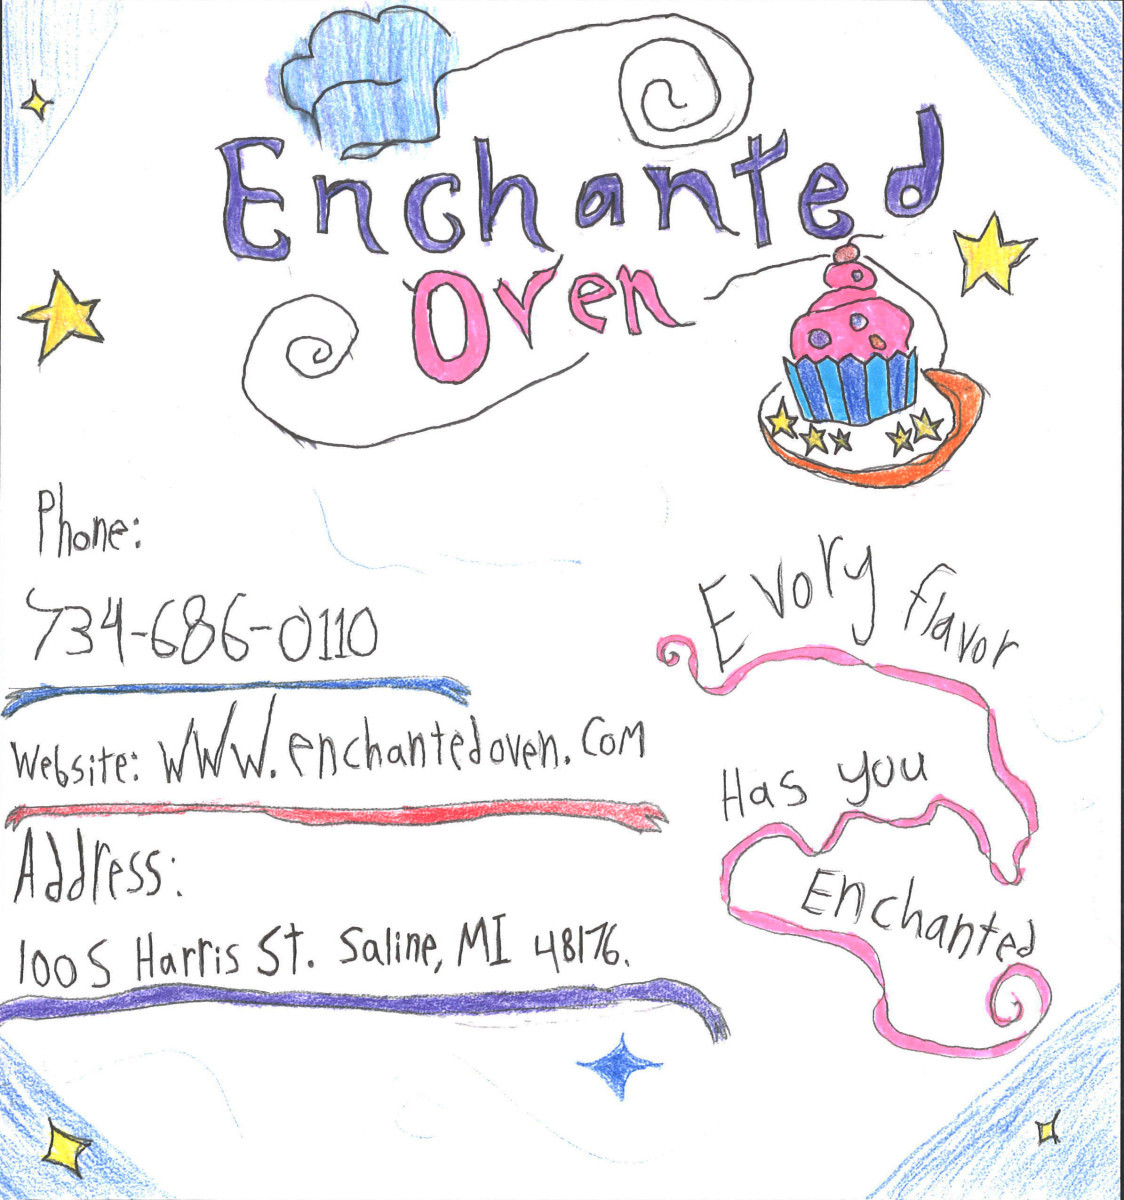 Enchanted
Oven
Phone:
734-686-0110
Website: www.enchantedoven.com
Address:
100 S Harris St. Saline, MI 48176.
Evory flavor
Has you
Enchanted